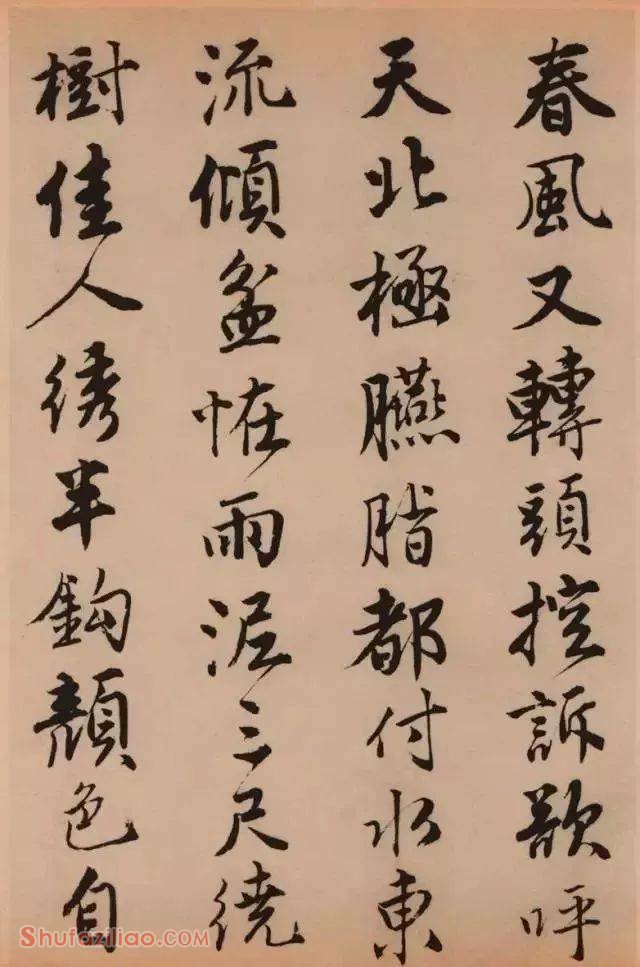 春風又轉頭控訴欲呼
天北極臙脂都付水東
流傾盆恠雨泥三尺繞
樹佳人綉半鈎顏色自
Shufaziliao.COM